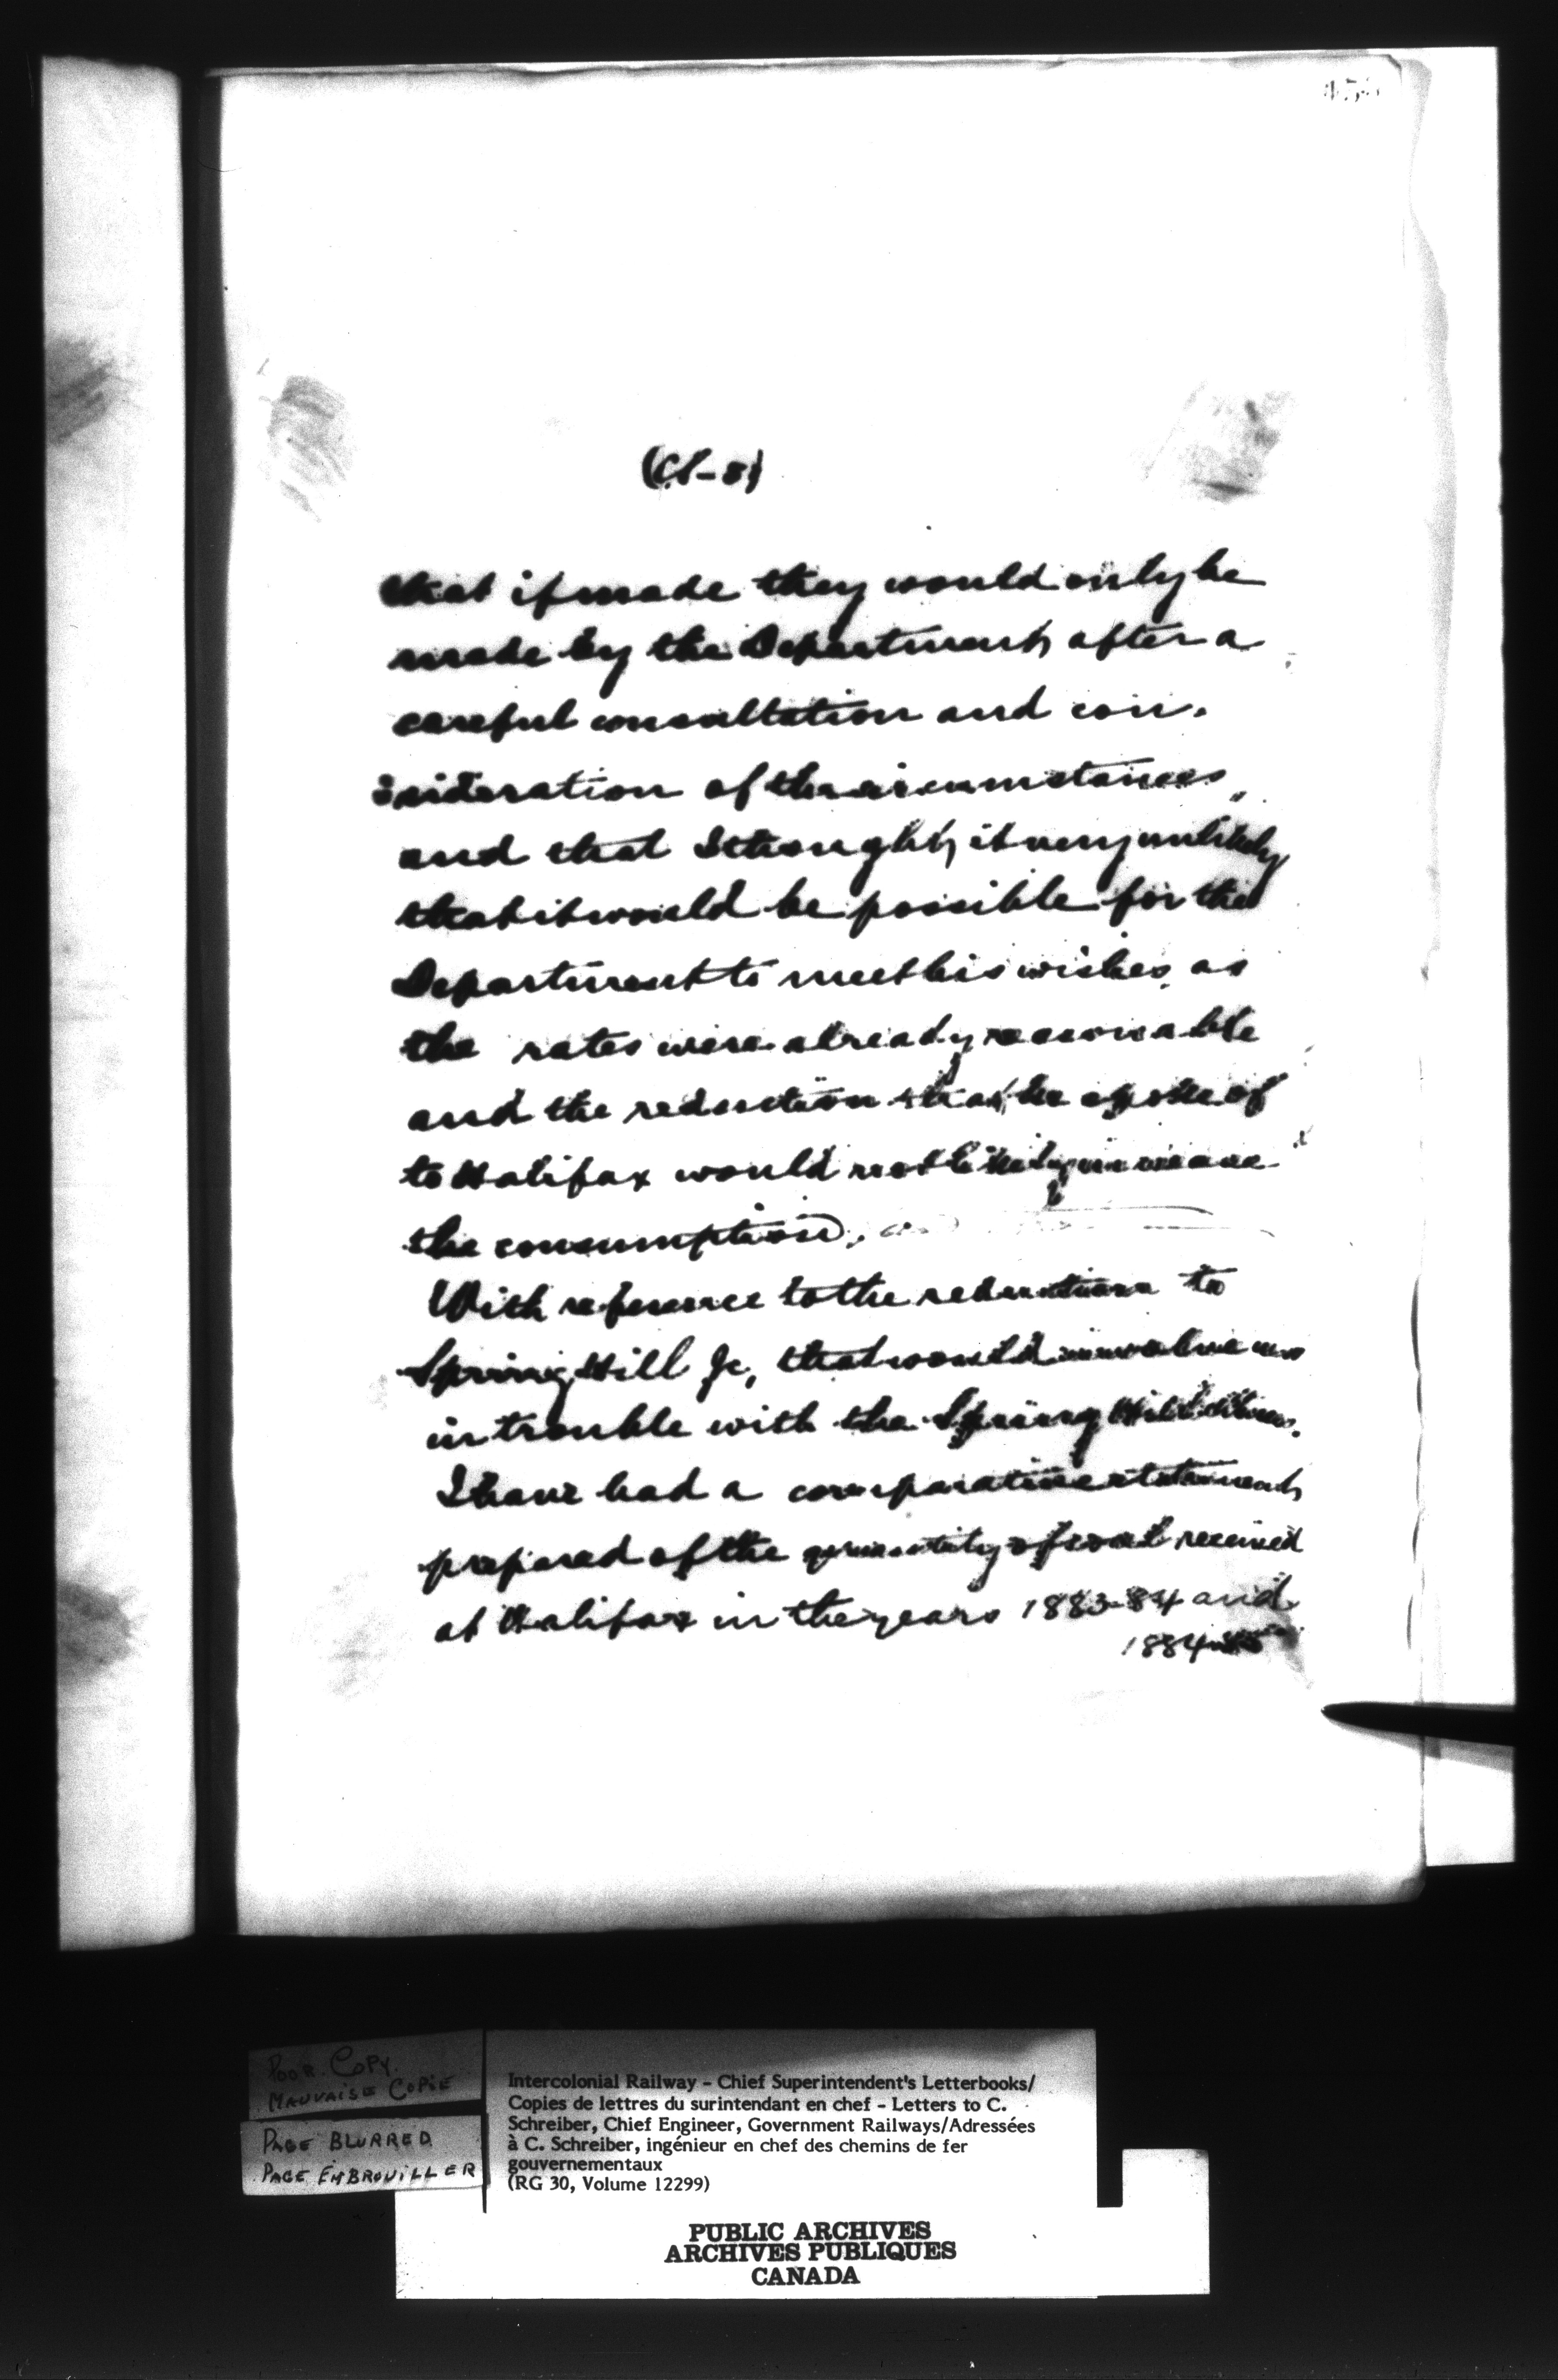 that if made they would only be
made by the Department after a
careful consultation and con-
sideration of the circumstances,
and that I thought it very unlikely
that it would be possible for the
Department to meet his wishes, as
the rates were already reasonable
and the reduction that he spoke of
to Halifax would not likely increase
the consumption.
With reference to the reduction to
Spring Hill Jc, that would involve us
in trouble with the Spring Hill
I have had a comparative statement
prepared of the quantity of coal received
at Halifax in the years 1883-84 and
1884-85
POOR COPY.
MAUVAISE COPIE
PAGE BLURRED
PAGE EMBROUILLER
Intercolonial Railway - Chief Superintendent's Letterbooks/
Copies de lettres du surintendant en chef - Letters to C.
Schreiber, Chief Engineer, Government Railways/Adressées
à C. Schreiber, ingénieur en chef des chemins de fer
gouvernementaux
(RG 30, Volume 12299)
PUBLIC ARCHIVES
ARCHIVES PUBLIQUES
CANADA